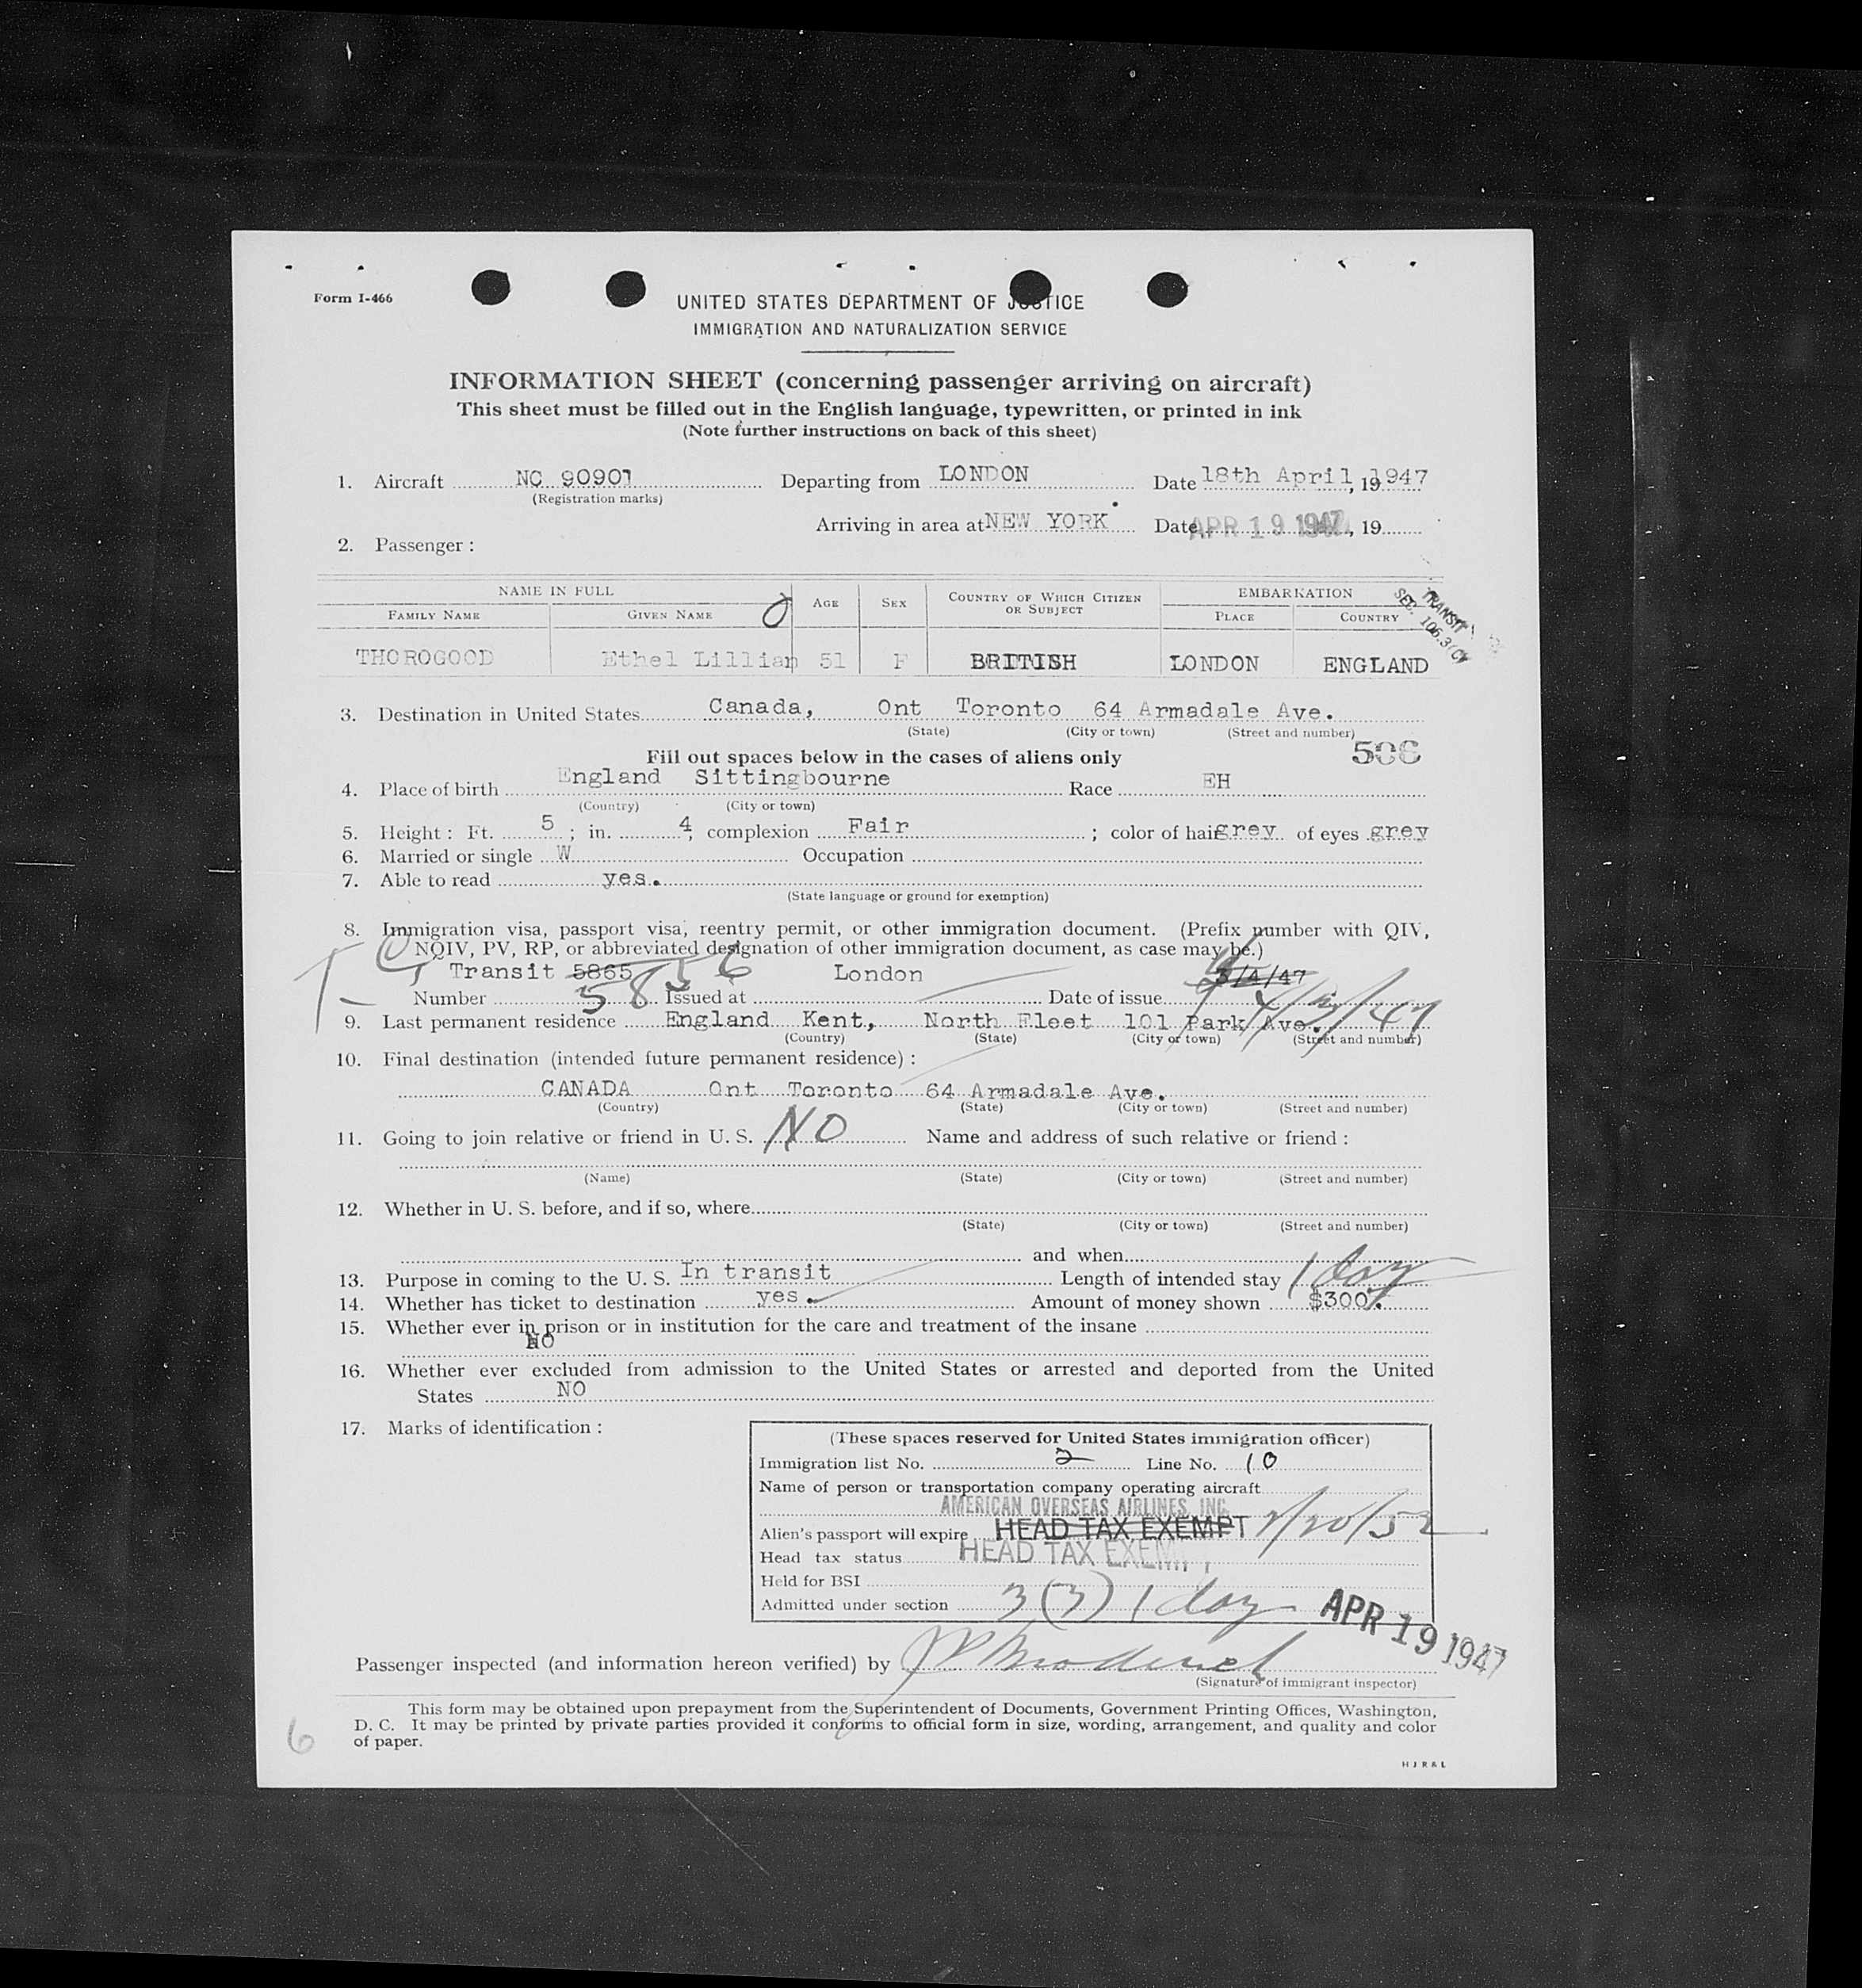 Form I-466
UNITED STATES DEPARTMENT OF JUSTICE
IMMIGRATION AND NATURALIZATION SERVICE
INFORMATION SHEET (concerning passenger arriving on aircraft)
This sheet must be filled out in the English language, typewritten, or printed in ink
(Note further instructions on back of this sheet)
1. Aircraft NC 90901 Departing from LONDON Date 18th April, 19 947
(Registration marks)
Arriving in area at NEW YORK Date APR 19 1947, 19
2. Passenger :
NAME IN FULL AGE SEX COUNTRY OF WHICH CITIZEN OR SUBJECT EMBARKATION
FAMILY NAME GIVEN NAME PLACE COUNTRY
TRANSIT
SEC. 106.3
THOROGOOD Ethel Lillian 51 F BRITISH LONDON ENGLAND
3. Destination in United States Canada, Ont Toronto 64 Armadale Ave.
(State) (City or town) (Street and number)
Fill out spaces below in the cases of aliens only 506
4. Place of birth England Sittingbourne Race EH
(Country) (City or town)
5. Height : Ft. 5 ; in. 4, complexion Fair ; color of hair grey of eyes grey
6. Married or single W Occupation
7. Able to read yes.
(State language or ground for exemption)
8. Immigration visa, passport visa, reentry permit, or other immigration document. (Prefix number with QIV,
NQIV, PV, RP, or abbreviated designation of other immigration document, as case may be.)
Transit 5865 5856 London 3/4/47
Number Issued at Date of issue 4/3/47
9. Last permanent residence England Kent, North Fleet 101 Park Ave.
(Country) (State) (City or town) (Street and number)
10. Final destination (intended future permanent residence) :
CANADA Ont Toronto 64 Armadale Ave.
(Country) (State) (City or town) (Street and number)
11. Going to join relative or friend in U. S. NO Name and address of such relative or friend :
(Name) (State) (City or town) (Street and number)
12. Whether in U. S. before, and if so, where
(State) (City or town) (Street and number)
and when
13. Purpose in coming to the U. S. In transit Length of intended stay 1 day
14. Whether has ticket to destination yes. Amount of money shown $300.
15. Whether ever in prison or in institution for the care and treatment of the insane
NO
16. Whether ever excluded from admission to the United States or arrested and deported from the United
States NO
17. Marks of identification :
(These spaces reserved for United States immigration officer)
Immigration list No. 2 Line No. 10
Name of person or transportation company operating aircraft
AMERICAN OVERSEAS AIRLINES, INC.
Alien's passport will expire HEAD TAX EXEMPT 2/20/52
Head tax status HEAD TAX EXEMPT
Held for BSI
Admitted under section 3(3) 1 day APR 19 1947
Passenger inspected (and information hereon verified) by
(Signature of immigrant inspector)
This form may be obtained upon prepayment from the Superintendent of Documents, Government Printing Offices, Washington,
D. C. It may be printed by private parties provided it conforms to official form in size, wording, arrangement, and quality and color
of paper.
6
H J R & L